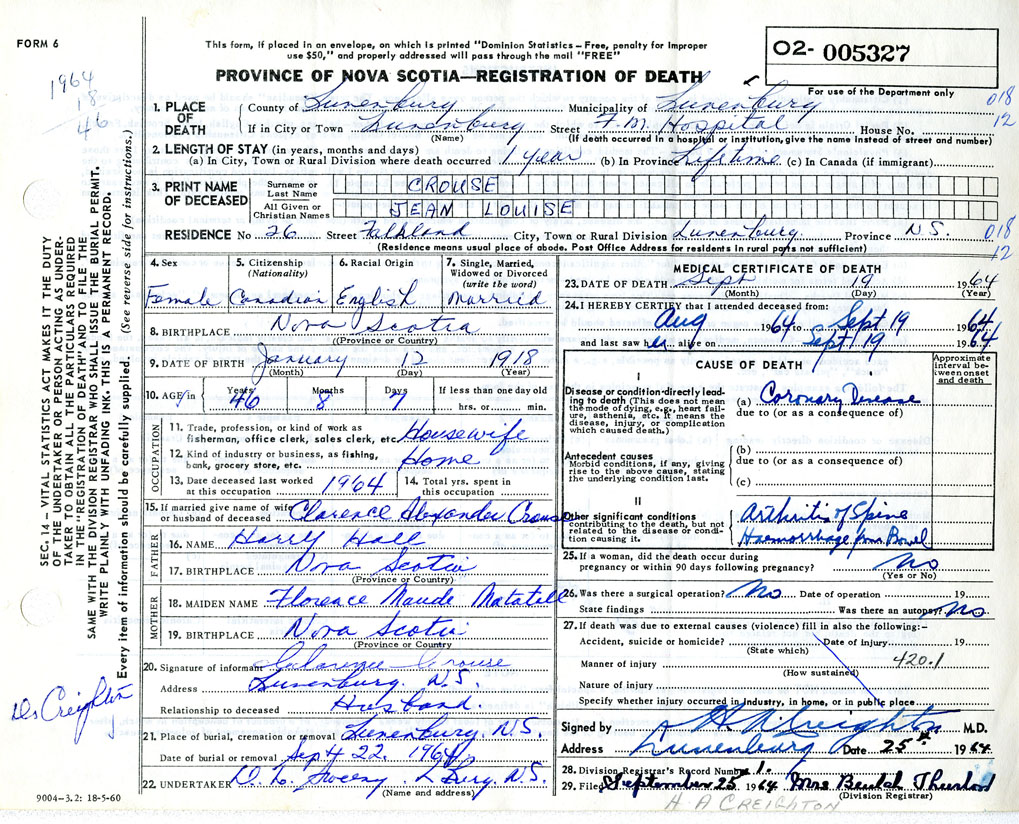 FORM 6
This form, if placed in an envelope, on which is printed "Dominion Statistics – Free, penalty for Improper
use $50," and properly addressed will pass through the mail "FREE"
PROVINCE OF NOVA SCOTIA—REGISTRATION OF DEATH
O2- 005327
For use of the Department only
1964
18
46
018
12
1. PLACE OF DEATH
County of Lunenburg Municipality of Lunenburg
If in City or Town Lunenburg Street F.M. Hospital House No.
(Name) (If death occurred in a hospital or institution, give the name instead of street and number)
2. LENGTH OF STAY (in years, months and days)
(a) In City, Town or Rural Division where death occurred 1 year (b) In Province Lifetime (c) In Canada (if immigrant)
3. PRINT NAME OF DECEASED
Surname or Last Name CROUSE
All Given or Christian Names JEAN LOUISE
RESIDENCE No 26 Street Falkland City, Town or Rural Division Lunenburg Province N.S.
018
12
(Residence means usual place of abode. Post Office Address for residents in rural parts not sufficient)
4. Sex Female
5. Citizenship (Nationality) Canadian
6. Racial Origin English
7. Single, Married, Widowed or Divorced (write the word) Married
8. BIRTHPLACE Nova Scotia
(Province or Country)
9. DATE OF BIRTH January 12 1918
(Month) (Day) (Year)
10. AGE in Years 46 Months 8 Days 7 If less than one day old hrs. or min.
OCCUPATION
11. Trade, profession, or kind of work as fisherman, office clerk, sales clerk, etc. Housewife
12. Kind of industry or business, as fishing, bank, grocery store, etc. Home
13. Date deceased last worked at this occupation 1964
14. Total yrs. spent in this occupation
15. If married give name of wife or husband of deceased Clarence Alexander Crouse
FATHER
16. NAME Harry Hall
17. BIRTHPLACE Nova Scotia
(Province or Country)
MOTHER
18. MAIDEN NAME Florence Maude Matatall
19. BIRTHPLACE Nova Scotia
(Province or Country)
20. Signature of informant Clarence Crouse
Address Lunenburg. N.S.
Relationship to deceased Husband.
21. Place of burial, cremation or removal Lunenburg. N.S.
Date of burial or removal Sept 22. 1964
22. UNDERTAKER N.S.
(Name and address)
MEDICAL CERTIFICATE OF DEATH
23. DATE OF DEATH Sept 19 1964
(Month) (Day) (Year)
24. I HEREBY CERTIFY that I attended deceased from:
Aug 1964 to Sept 19 1964
and last saw her alive on Sept 19 1964
CAUSE OF DEATH
Approximate interval between onset and death
I
Disease or condition directly leading to death (This does not mean the mode of dying, e.g., heart failure, asthenia, etc. It means the disease, injury, or complication which caused death.)
(a) Coronary Disease
due to (or as a consequence of)
Antecedent causes
Morbid conditions, if any, giving rise to the above cause, stating the underlying condition last.
(b)
due to (or as a consequence of)
(c)
II
Other significant conditions contributing to the death, but not related to the disease or condition causing it.
Arthritis of Spine
Haemorrhage from Bowel
25. If a woman, did the death occur during pregnancy or within 90 days following pregnancy? No
(Yes or No)
26. Was there a surgical operation? No Date of operation 19
State findings Was there an autopsy? No
27. If death was due to external causes (violence) fill in also the following:–
Accident, suicide or homicide? Date of injury 19
(State which)
Manner of injury 420.1
(How sustained)
Nature of injury
Specify whether injury occurred in industry, in home, or in public place
Signed by H A Creighton M.D.
Address Lunenburg Date 25th 1964
28. Division Registrar's Record Number 1.
29. Filed September 25 1964 Mrs
(Division Registrar)
H A CREIGHTON
SEC. 14 – VITAL STATISTICS ACT MAKES IT THE DUTY
OF THE UNDERTAKER OR PERSON ACTING AS UNDER-
TAKER TO OBTAIN ALL THE PARTICULARS REQUIRED
IN THE "REGISTRATION OF DEATH" AND TO FILE THE
SAME WITH THE DIVISION REGISTRAR WHO SHALL ISSUE THE BURIAL PERMIT.
WRITE PLAINLY WITH UNFADING INK. THIS IS A PERMANENT RECORD.
Every item of information should be carefully supplied. (See reverse side for instructions.)
Dr Creighton
9004-3.2: 18-5-60